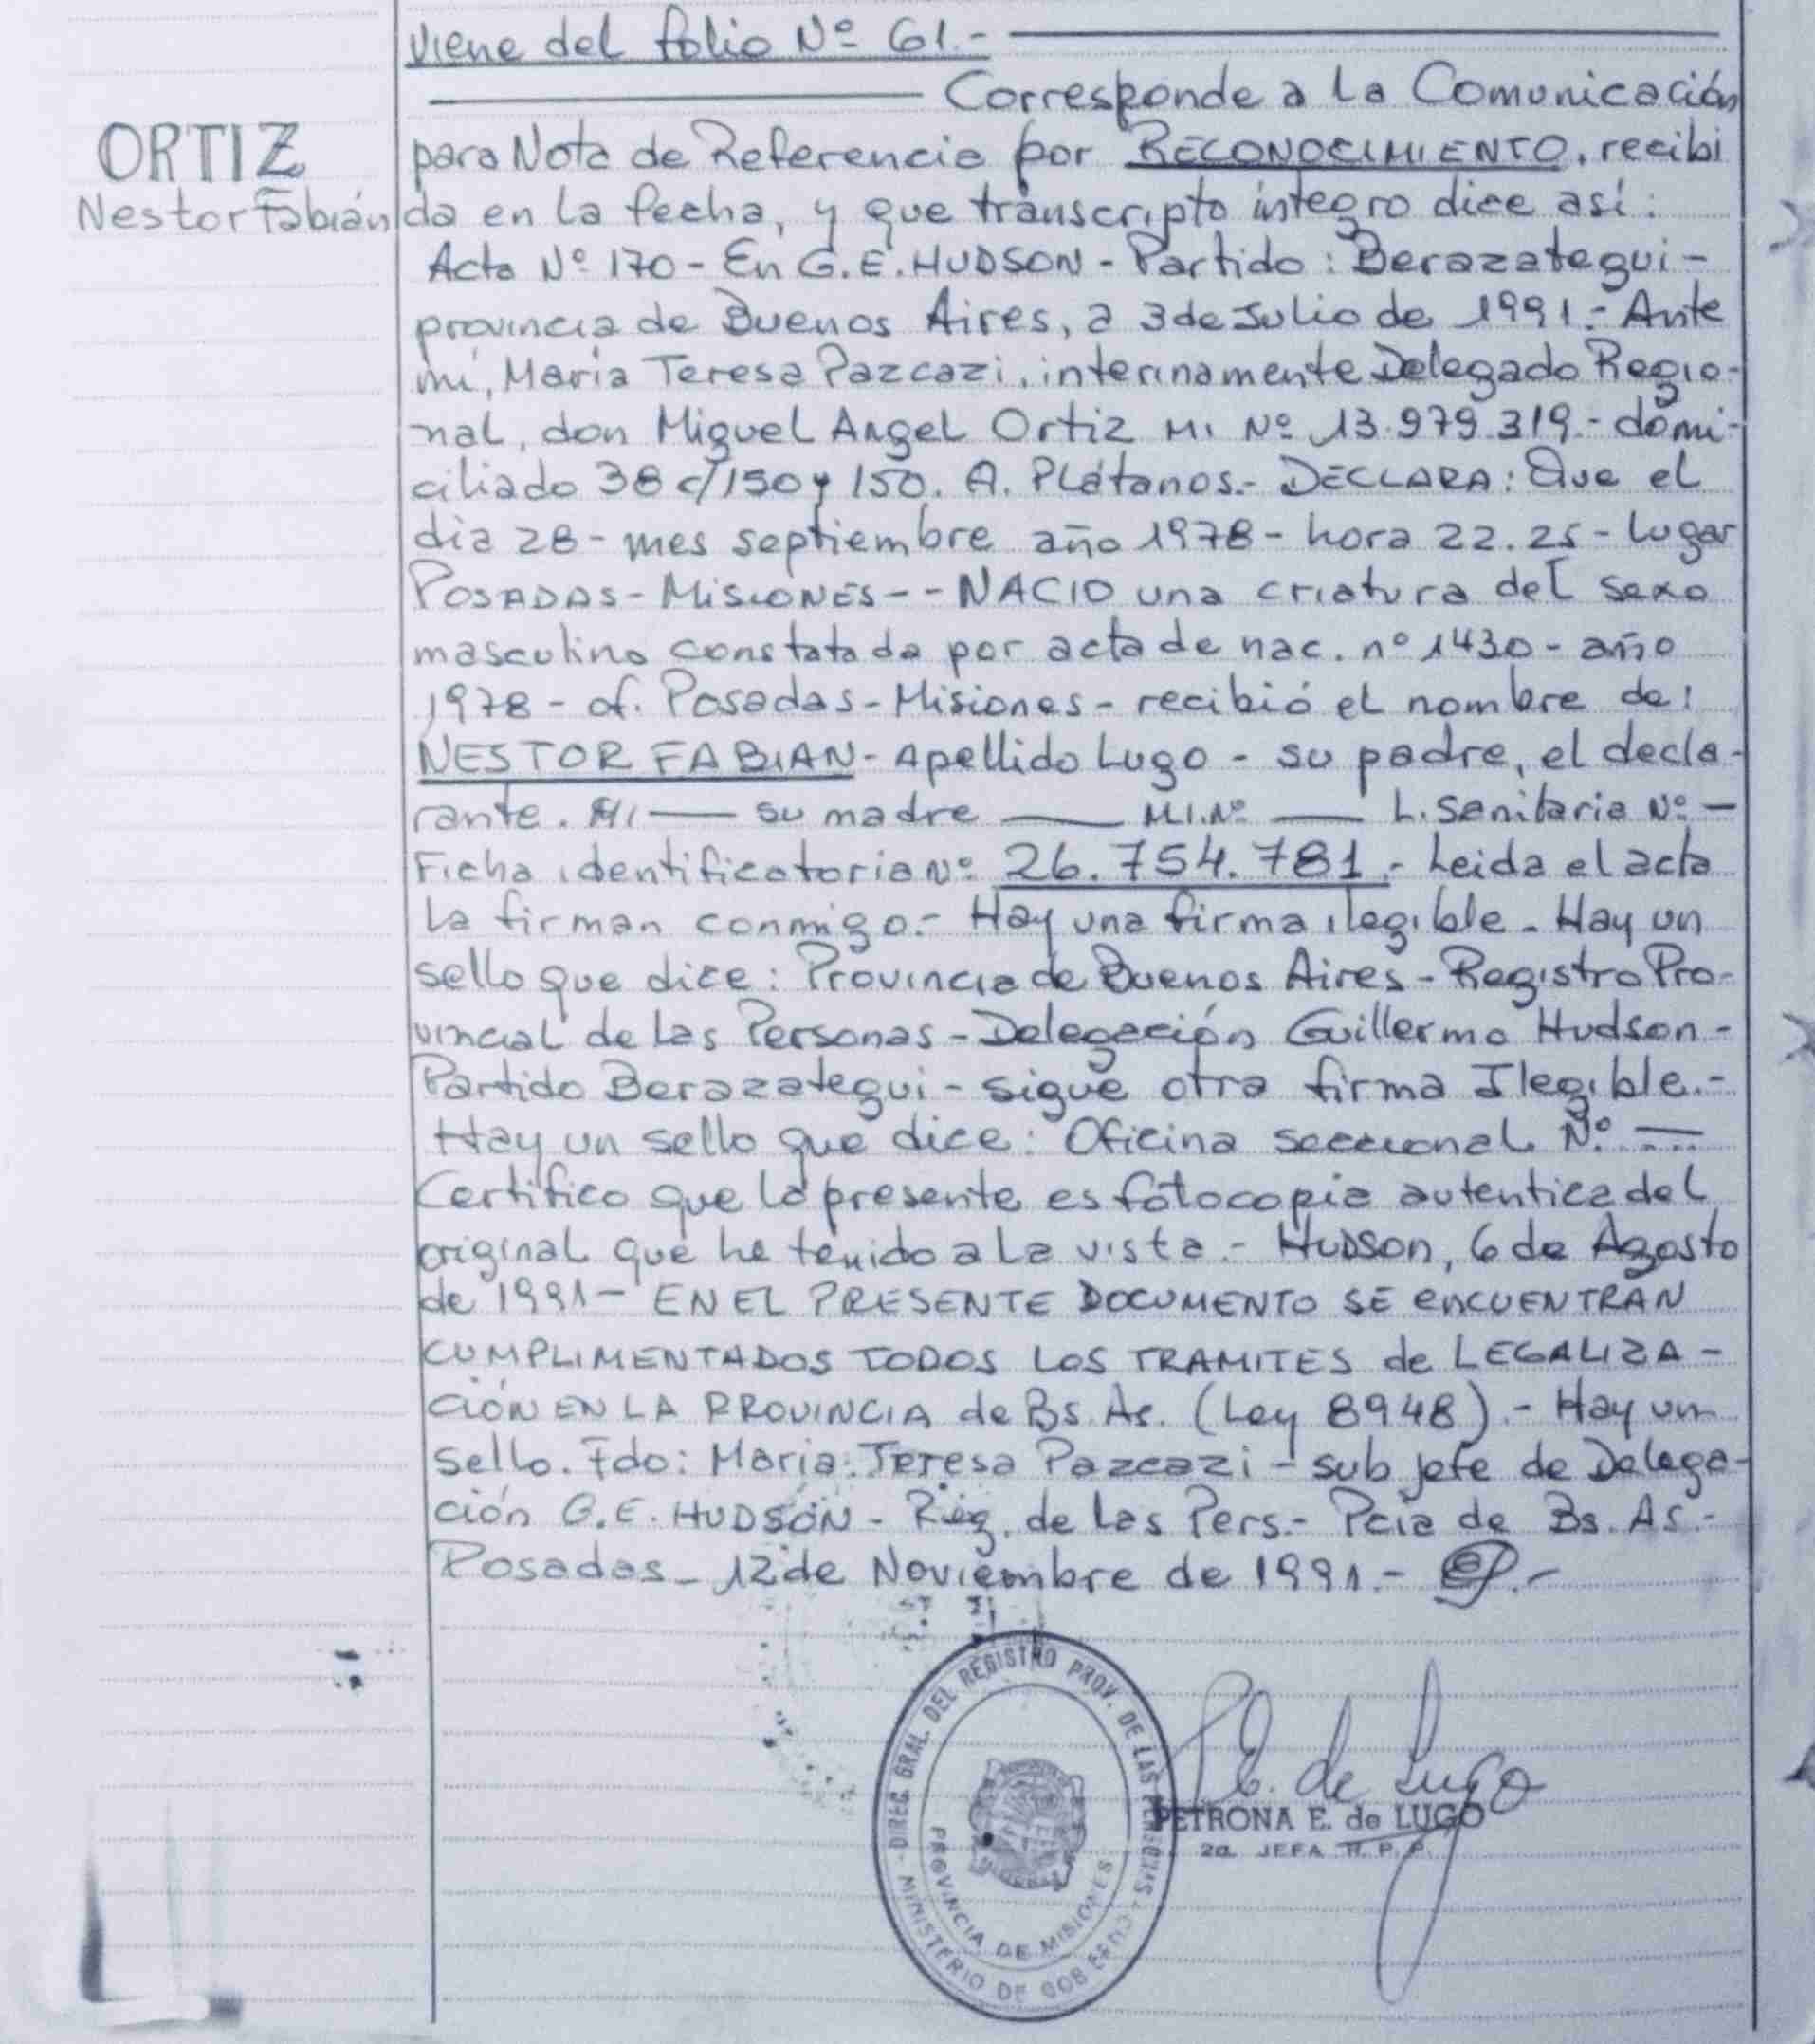 viene del folio Nº 61.-
Corresponde a la Comunicación
ORTIZ
Nestor Fabián
para Nota de Referencia por RECONOCIMIENTO, recibi
da en la fecha, y que transcripto íntegro dice así:
Acta Nº 170 - En G.E. HUDSON - Partido: Berazategui -
provincia de Buenos Aires, a 3 de Julio de 1991.- Ante
mí, María Teresa Pazcazi, interinamente Delegado Regio-
nal, don Miguel Angel Ortiz MI Nº 13.979.319.- domi-
ciliado 38 c/150 y 150. A. Plátanos.- DECLARA: Que el
día 28 - mes septiembre año 1978 - hora 22.25 - lugar
POSADAS - MISIONES - - NACIO una criatura del sexo
masculino constatada por acta de nac. nº 1430 - año
1978 - of. Posadas - Misiones - recibió el nombre de:
NESTOR FABIAN - Apellido Lugo - su padre, el decla-
rante. MI — su madre — M.I.Nº — L. Sanitaria Nº —
Ficha identificatoria Nº 26.754.781.- Leida el acta
la firman conmigo.- Hay una firma ilegible. Hay un
sello que dice: Provincia de Buenos Aires - Registro Pro-
vincial de las Personas - Delegación Guillermo Hudson -
Partido Berazategui - sigue otra firma Ilegible.-
Hay un sello que dice: Oficina seccional Nº —
Certifico que la presente es fotocopia autentica del
original que he tenido a la vista.- HUDSON, 6 de Agosto
de 1991 - EN EL PRESENTE DOCUMENTO SE ENCUENTRAN
CUMPLIMENTADOS TODOS LOS TRAMITES de LEGALIZA -
CIÓN EN LA PROVINCIA de Bs. As. (Ley 8948).- Hay un
sello. Fdo: María Teresa Pazcazi - sub jefe de Delega-
ción G.E. HUDSON - Reg. de las Pers.- Pcia de Bs. As.-
Posadas - 12 de Noviembre de 1991.-
DIREC. GRAL. DEL REGISTRO PROV. DE LAS PERSONAS
MINISTERIO DE GOBIERNO
PROVINCIA DE MISIONES
P. E. de Lugo
PETRONA E. de LUGO
2a. JEFA R. P. P.